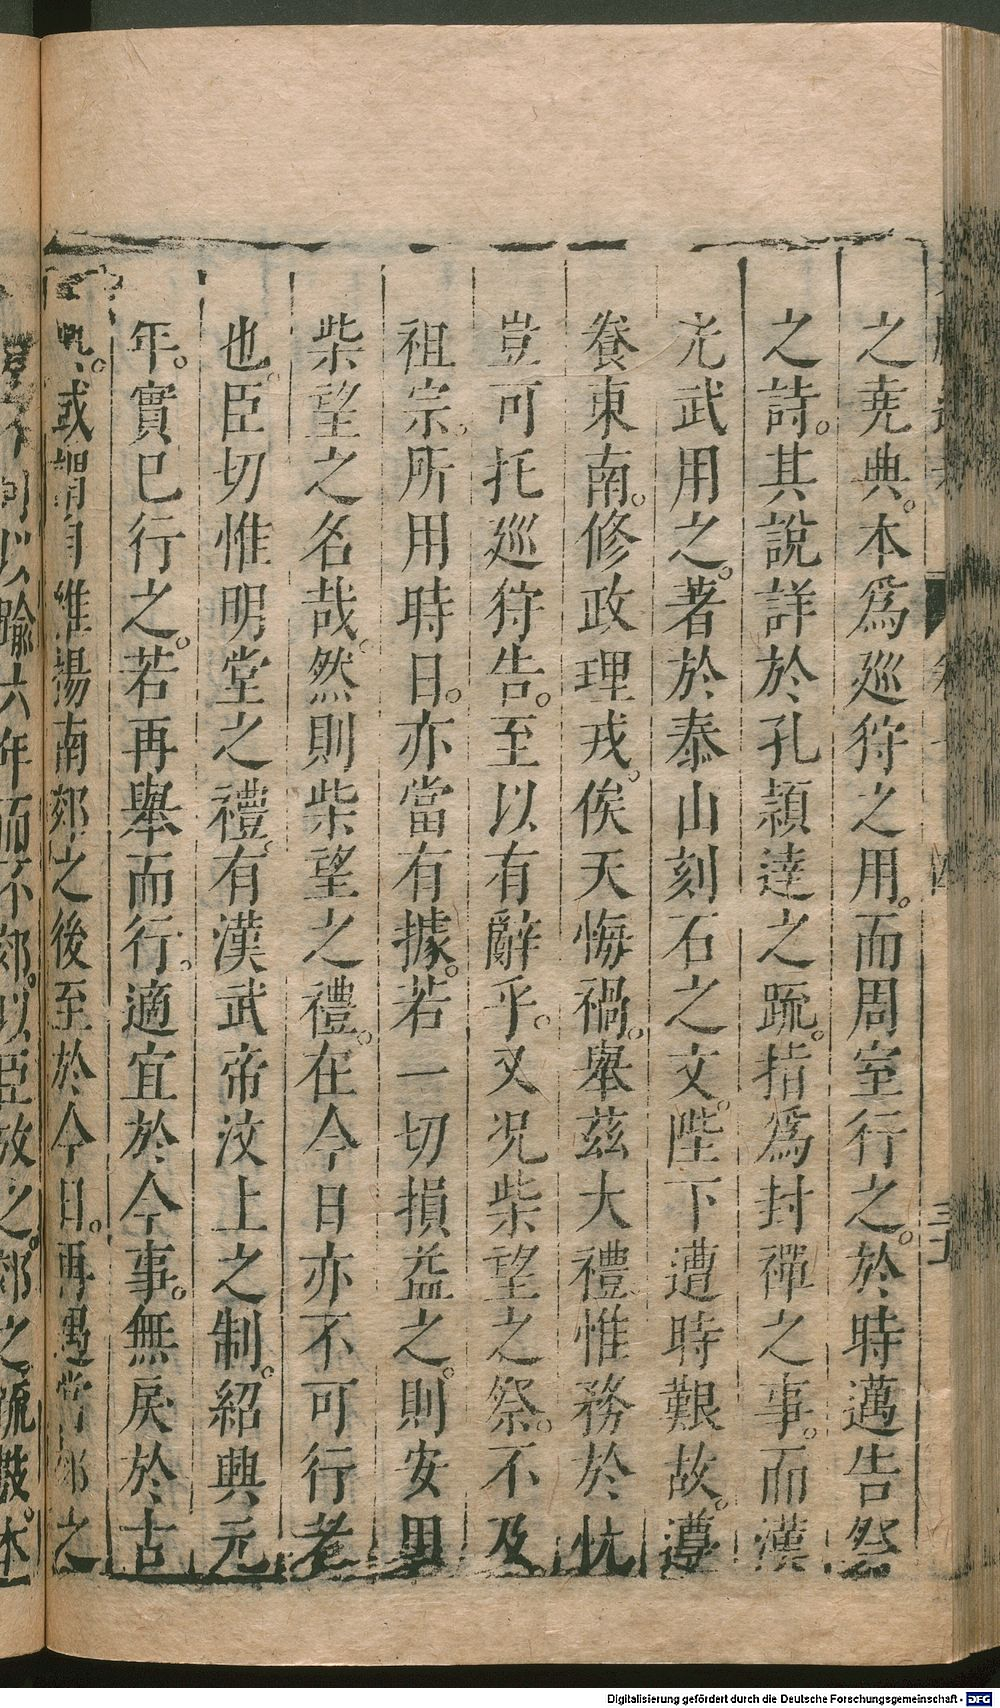 之堯典。本爲廵狩之用。而周室行之。於時邁告祭
之詩。其說詳於孔頴達之䟽。指爲封禪之事。而漢
光武用之。著於泰山刻石之文。陛下遭時艱故。遵
養東南。修政理戎。俟天悔禍。舉茲大禮惟務於忱
豈可托廵狩告。至以有辭乎。又况柴望之祭。不及
祖宗。所用時日。亦當有據。若一切損益之。則安用
柴望之名哉。然則柴望之禮。在今日亦不可行者
也。臣切惟明堂之禮。有漢武帝汶上之制。紹興元
年。實巳行之。若再舉而行。適宜於今事。無戾於古
或謂自維揚南郊之後至於今日。再遇當郊之
以喻六年而不郊。以臣故之。郊之疏數。本
Digitalisierung gefördert durch die Deutsche Forschungsgemeinschaft - DFG